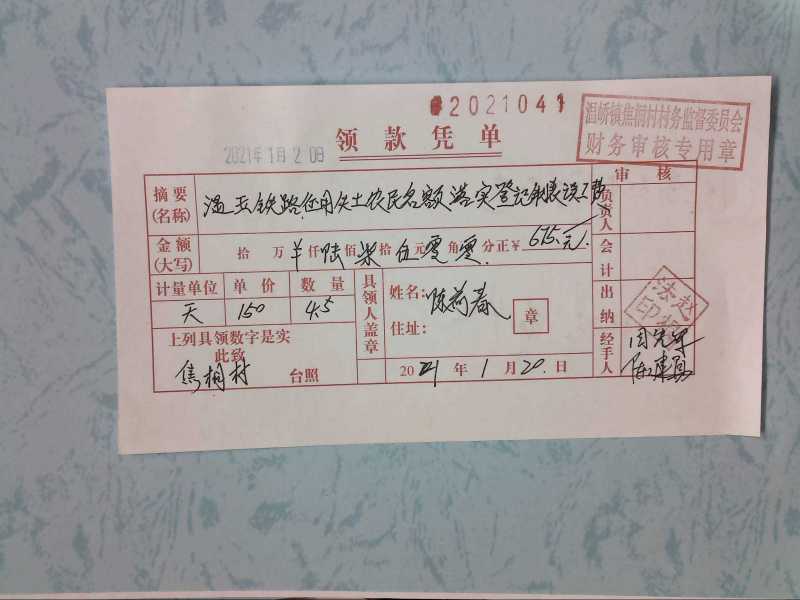 2021041
领款凭单
2021年1月20日
温峤镇焦桐村村务监督委员会
财务审核专用章
摘要(名称) 铁路 失土农民名额落实登记 误工费
审核
金额(大写) 拾 万 ¥ 仟 陆 佰 柒 拾 伍 元 零 角 零 分正 ¥ 675元
负责人
会计
计量单位 单价 数量
天 150 4.5
具领人盖章
姓名: 陈
住址:
章
出纳
上列具领数字是实
此致
焦桐村 台照
2021年1月20日
经手人